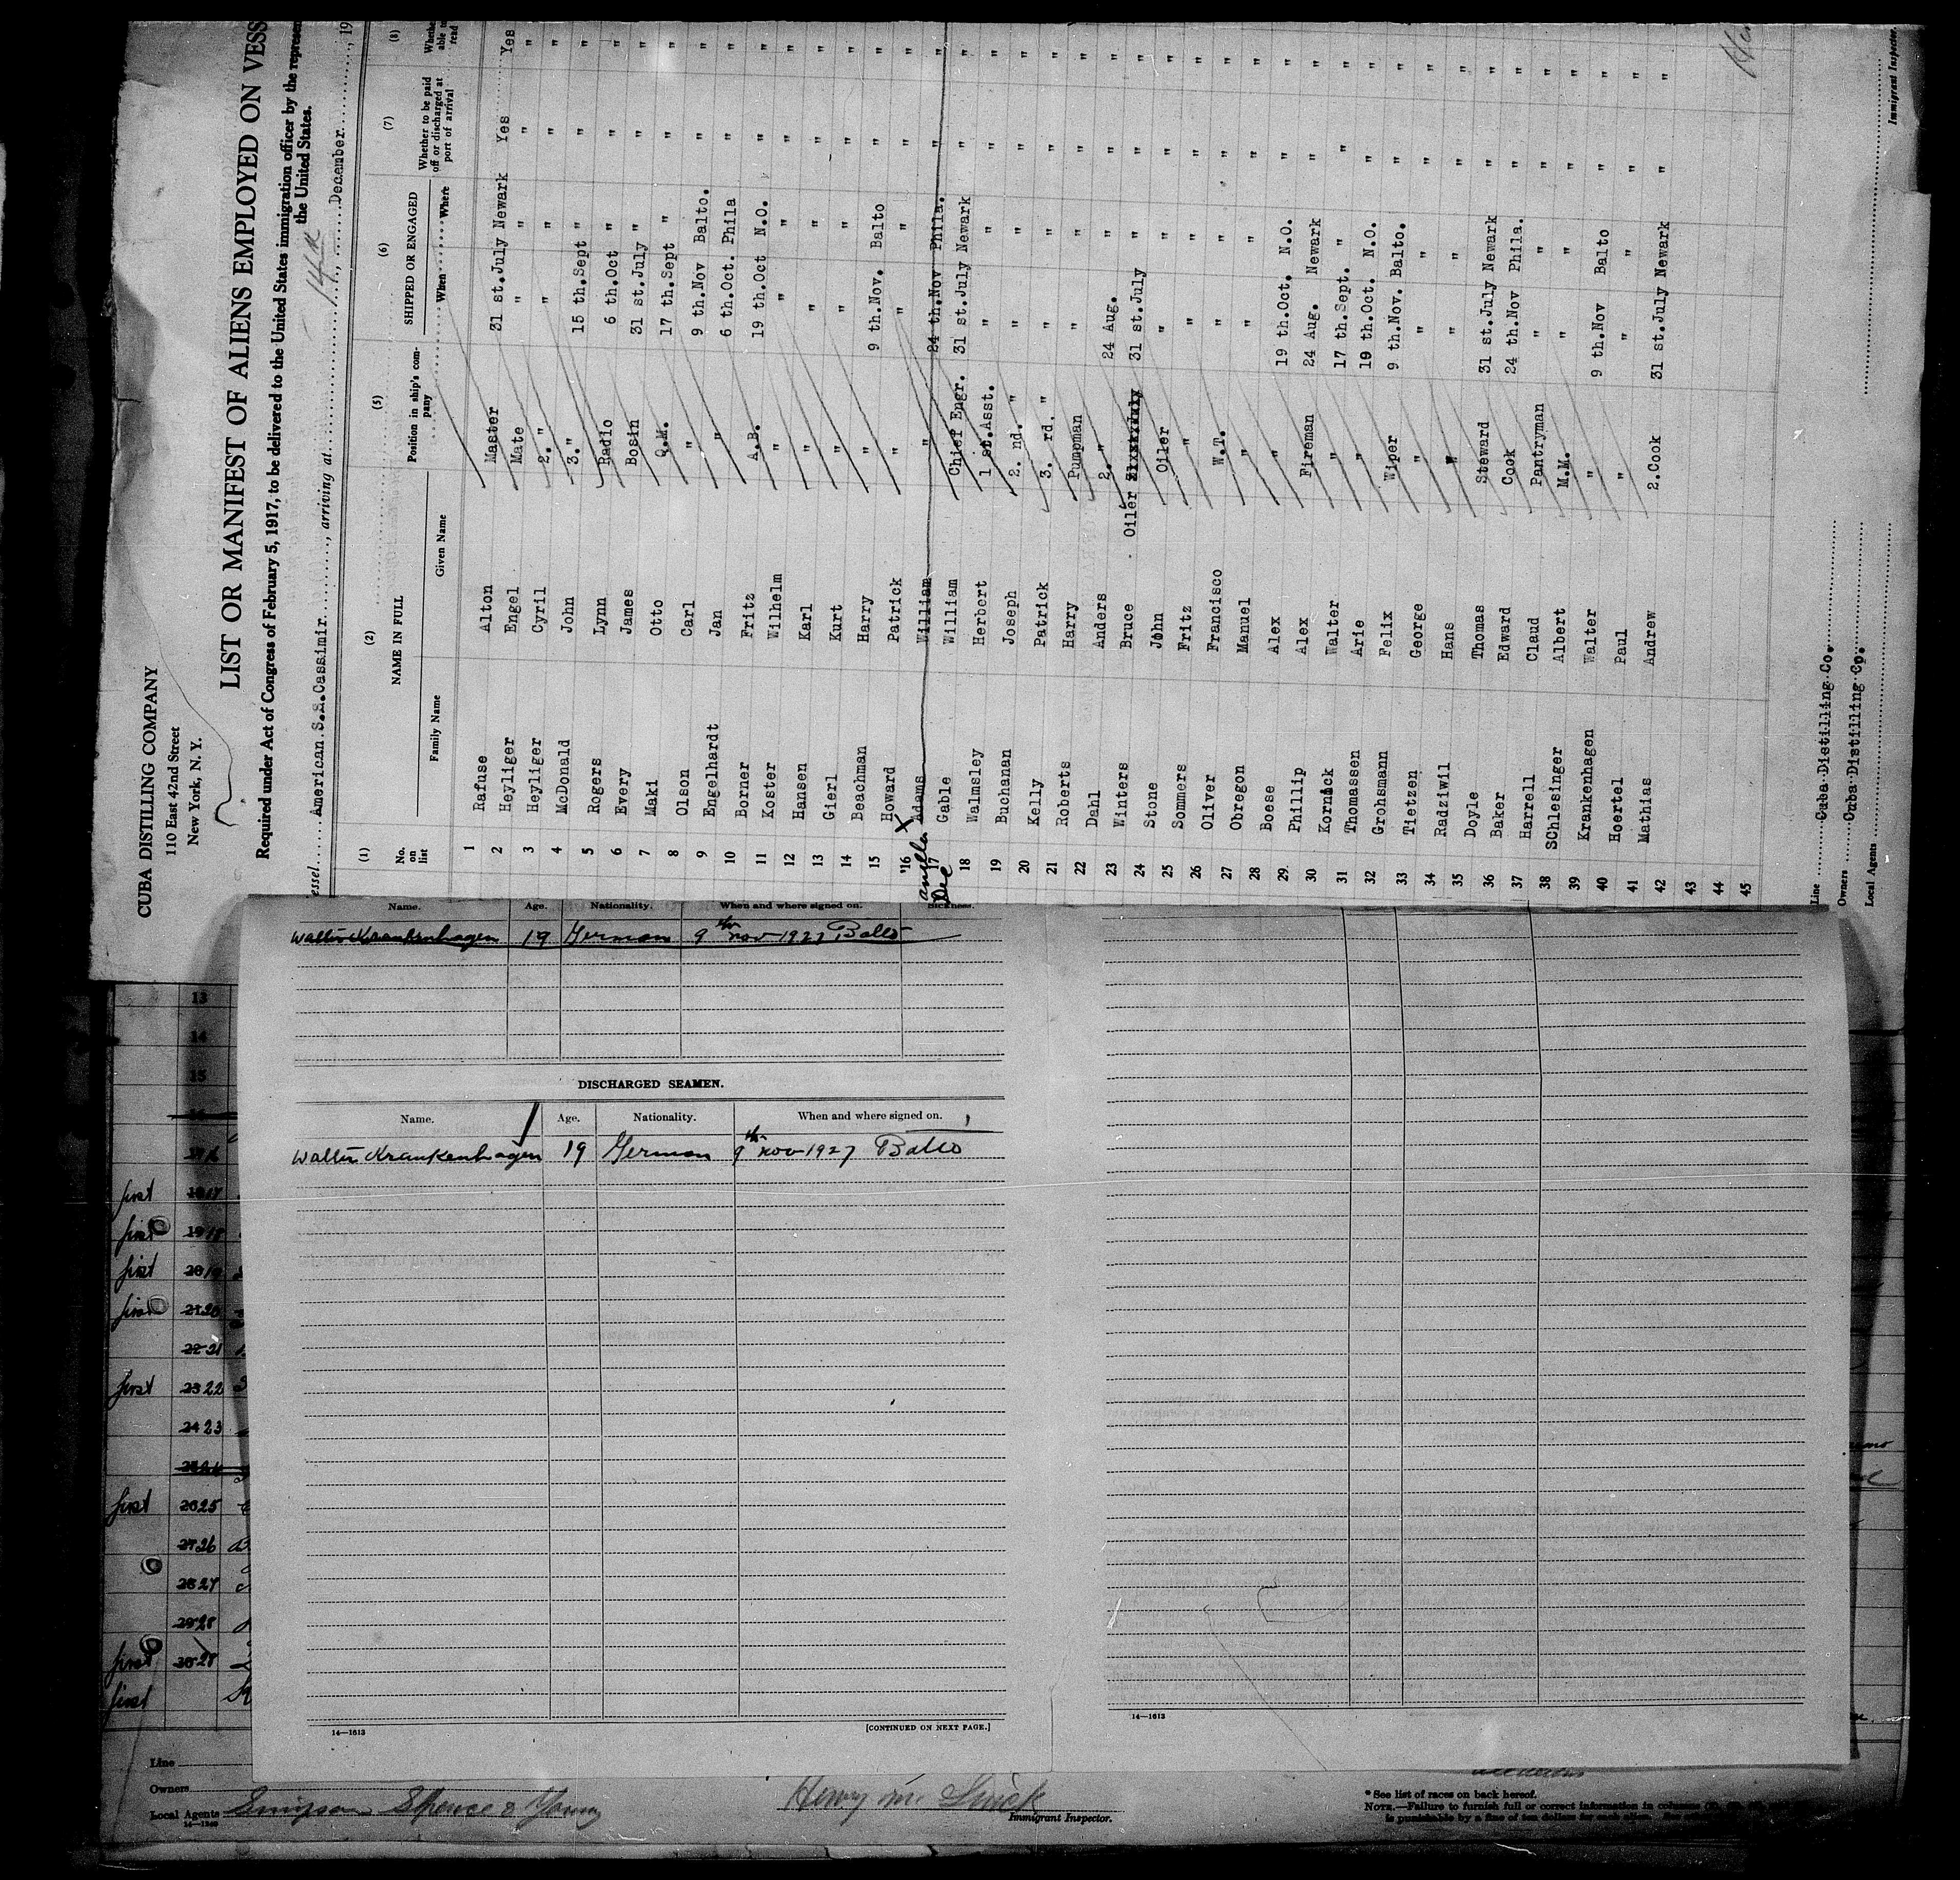 CUBA DISTILLING COMPANY
110 East 42nd Street
New York, N. Y.
LIST OR MANIFEST OF ALIENS EMPLOYED ON VESS
Required under Act of Congress of February 5, 1917, to be delivered to the United States immigration officer by the represen
the United States.
essel American.S.S.Cassimir, arriving at, December, 19
(1) (2) (5) (6) (7) (8)
No. on list NAME IN FULL Position in ship's company SHIPPED OR ENGAGED Whether to be paid off or discharged at port of arrival Whether able to read
Family Name Given Name When Where
1 Rafuse Alton Master 31 st.July Newark Yes Yes
2 Heyliger Engel Mate " " " "
3 Heyliger Cyril 2." " " " "
4 McDonald John 3." 15 th.Sept " " "
5 Rogers Lynn Radio 6 th.Oct " " "
6 Every James Bosin 31 st.July " " "
7 Maki Otto Q.M. 17 th.Sept " " "
8 Olson Carl " 9 th.Nov Balto. " "
9 Engelhardt Jan " 6 th.Oct. Phila " "
10 Borner Fritz A.B. 19 th.Oct N.O. " "
11 Koster Wilhelm " " " " "
12 Hansen Karl " " " " "
13 Gierl Kurt " " " " "
14 Beachman Harry " 9 th.Nov. Balto " "
15 Howard Patrick " " " " "
16 Adams William " 24 th.Nov Phila. " "
17 Gable William Chief Engr. 31 st.July Newark " "
18 Walmsley Herbert 1 st.Asst. " " " "
19 Buchanan Joseph 2. nd. " " " " "
20 Kelly Patrick 3. rd. " " " " "
21 Roberts Harry Pumpman " " " "
22 Dahl Anders 2. " 24 Aug. " " "
23 Winters Bruce Oiler 31 st.July " " "
24 Stone John Oiler " " " "
25 Sommers Fritz " " " " "
26 Oliver Francisco W.T. " " " "
27 Obregon Manuel " " " " "
28 Boese Alex " 19 th.Oct. N.O. " "
29 Phillip Alex Fireman 24 Aug. Newark " "
30 Kornock Walter " 17 th.Sept. " " "
31 Thomassen Arie " 19 th.Oct. N.O. " "
32 Grohsmann Felix Wiper 9 th.Nov. Balto. " "
33 Tietzen George " " " " "
34 Radziwil Hans " " " " "
35 Doyle Thomas Steward 31 st.July Newark " "
36 Baker Edward Cook 24 th.Nov Phila. " "
37 Harrell Claud Pantryman " " " "
38 SChlesinger Albert M.M. " " " "
39 Krankenhagen Walter " 9 th.Nov Balto " "
40 Hoertel Paul " " " " "
41 Mathias Andrew 2.Cook 31 st.July Newark " "
42
43
44
45
Line Cuba Distilling Co.
Owners Cuba Distilling Co.
Local Agents
Immigrant Inspector.
Name. Age. Nationality. When and where signed on. Sickness.
Walter Krankenhagen 19 German 9th nov 1927 Balto
DISCHARGED SEAMEN.
Name. Age. Nationality. When and where signed on.
Walter Krankenhagen 19 German 9th nov 1927 Balto
14—1613
[CONTINUED ON NEXT PAGE.]
14—1613
13
14
15
first
first
first
first
22 21
first 23 22
24 23
first 26 25
27 26
28 27
29 28
first
first
Line
Owners
Local Agents Simpson Spence & Young
Immigrant Inspector.
* See list of races on back hereof.
NOTE.—Failure to furnish full or correct information in columns
is punishable by a fine of ten dollars for each alien.